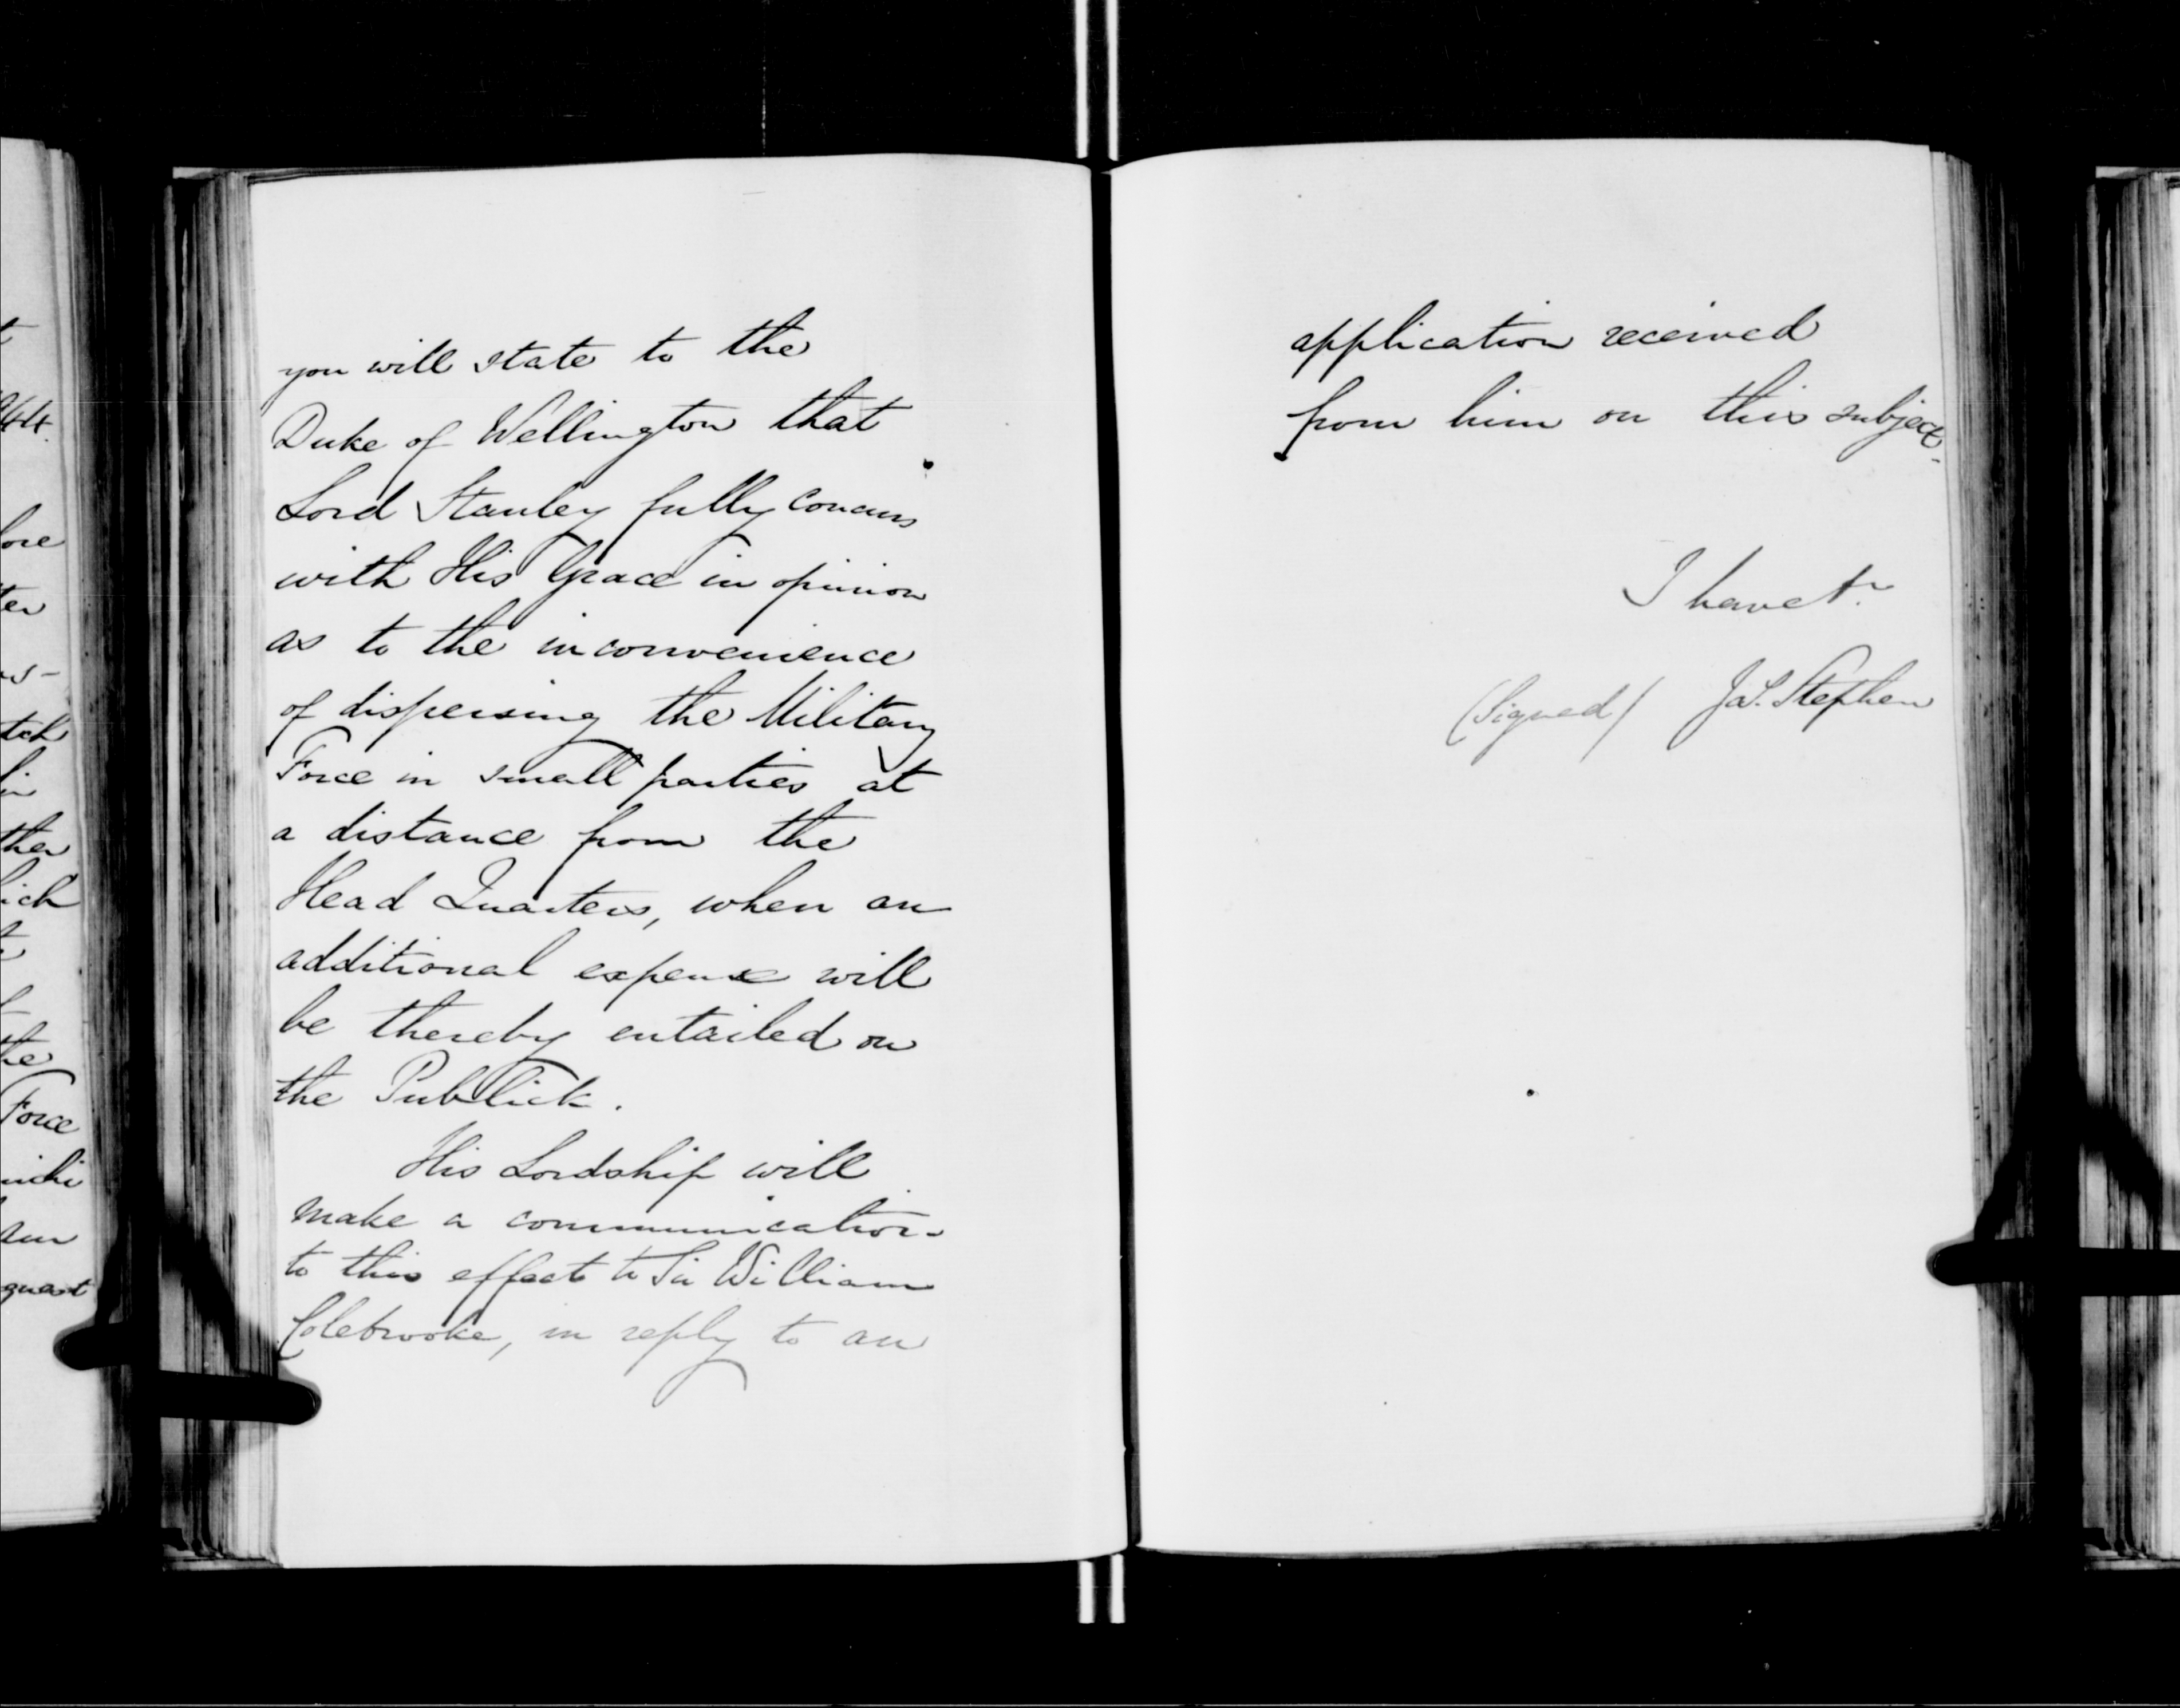 t
44.
lose
ter
ns-
tch
in
ther
lich
t
the
Force
michi
am
quest
you will state to the
Duke of Wellington that
Lord Stanley fully concurs
with His Grace in opinion
as to the inconvenience
of dispersing the Military
Force in small parties at
a distance from the
Head Quarters, when an
additional expense will
be thereby entailed on
the Publick.
His Lordship will
make a communication
to this effect to Sir William
Colebrooke, in reply to an
application received
from him on this subject.
I have &c.
(Signed) Jas. Stephen